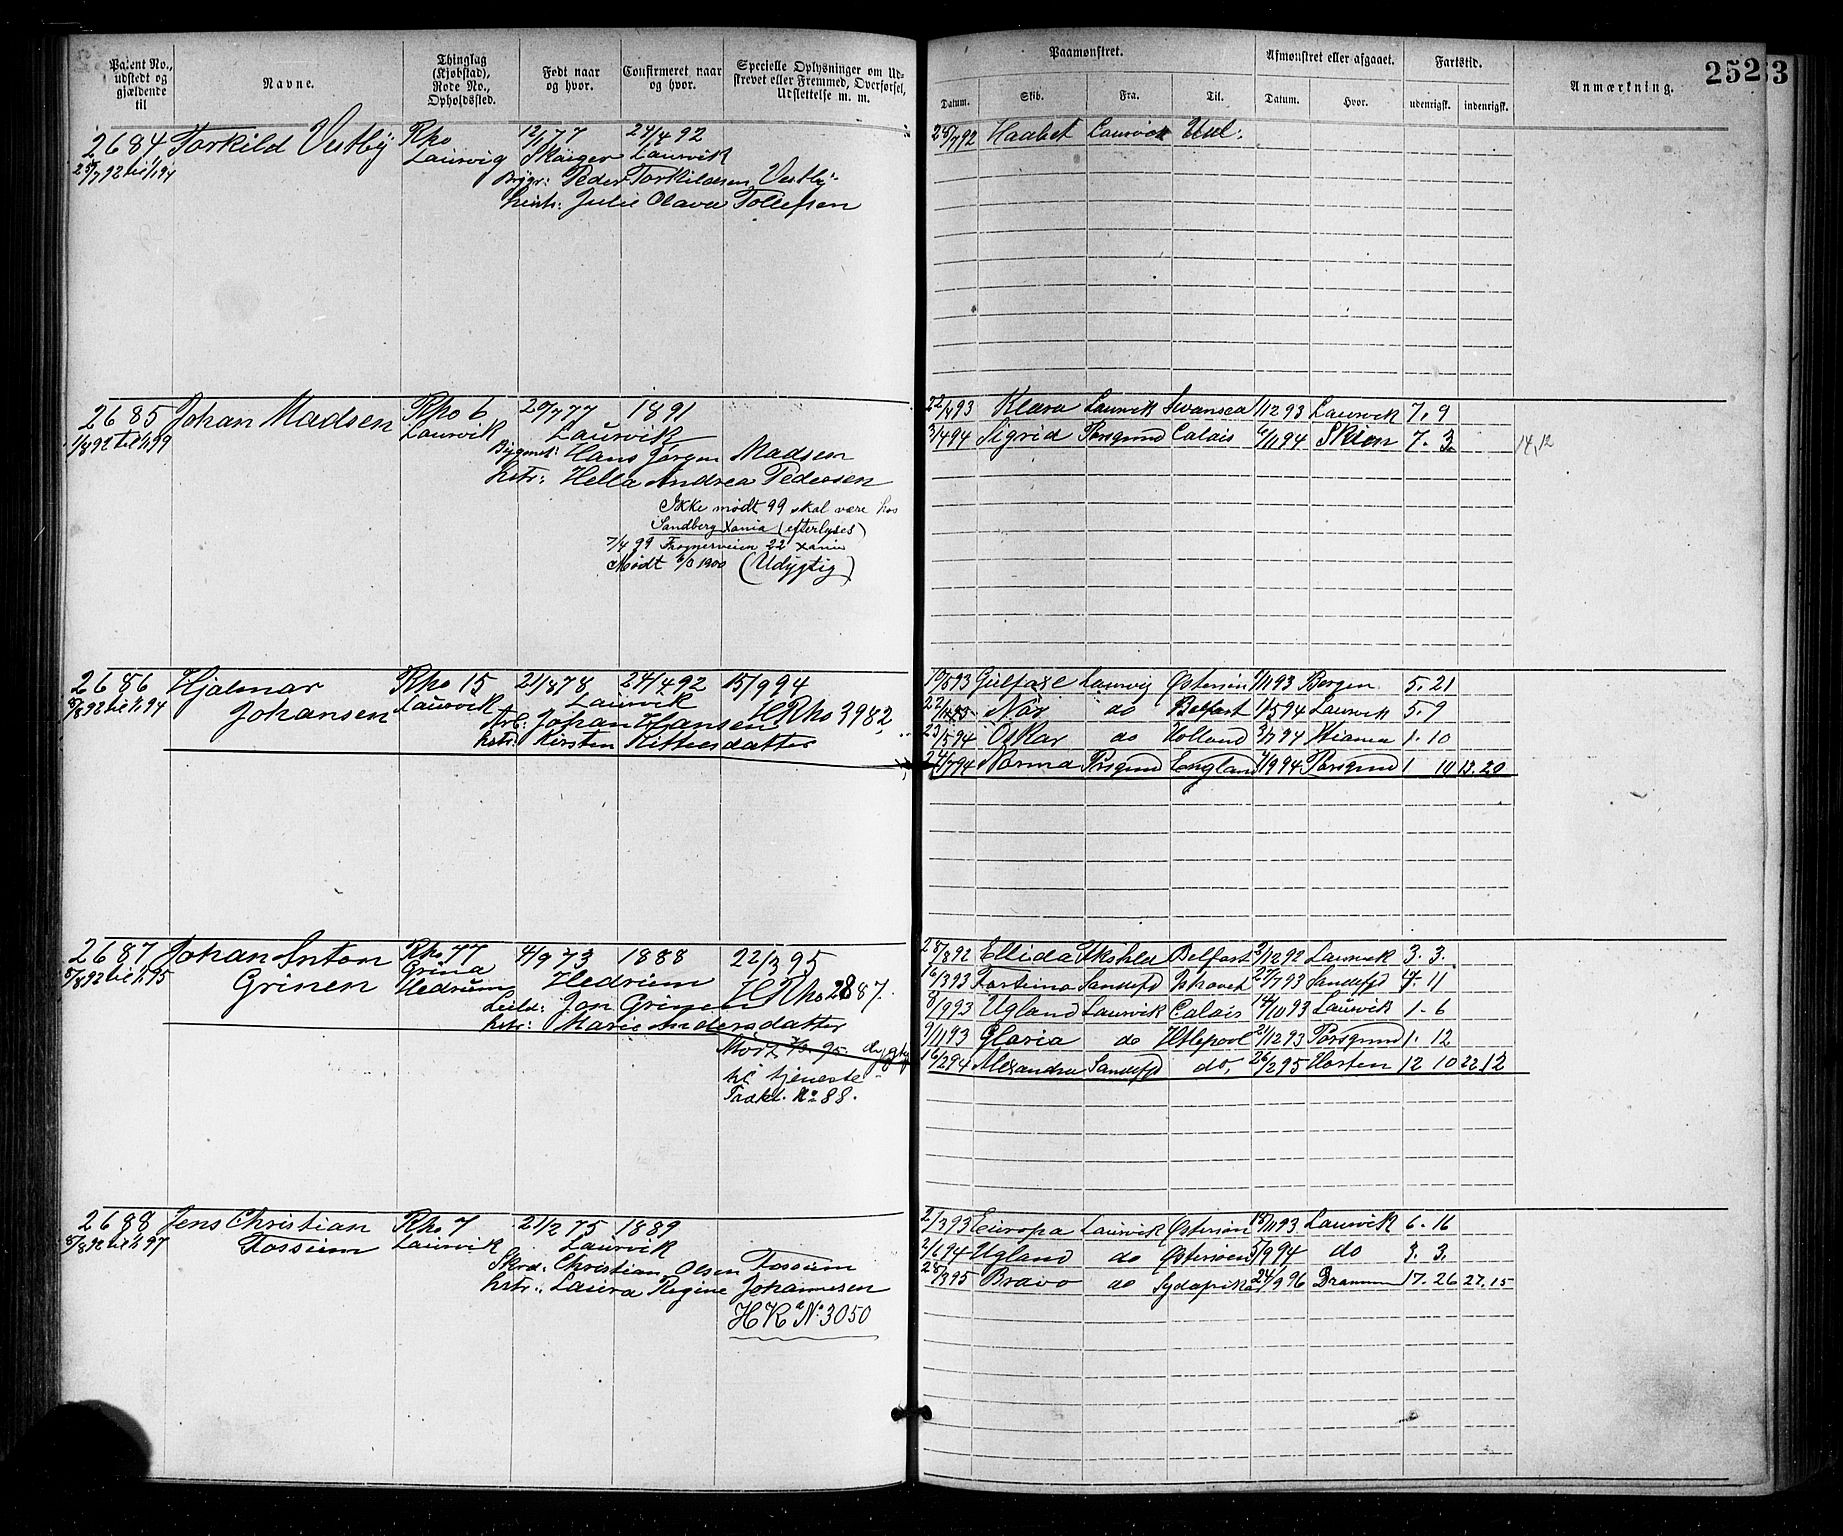 Patent No., udstedt og gjældende til
Navne.
Thinglag (Kjøbstad), Rode No., Opholdssted.
Født naar og hvor.
Confirmeret naar og hvor.
Specielle Oplysninger om Udskrevet eller Fremmed, Overførsel, Udslettelse m. m.
Paamønstret.
Datum. Skib. Fra. Til.
Afmønstret eller afgaaet.
Datum. Hvor.
Fartstid.
udenrigsk. indenrigsk.
Anmærkning.
252
3
2684 Torkild Vestby Rho 12/1 77 24/4 92
25/7 92 til 1/1 94 Laurvig Laurvik
Peder Torkildsen Vestby
Julie Olava Tollefsen
25/7 92 Haabet Laurvik
2685 Johan Madsen Rho 6 20/7 77 1891
1/8 92 til 1/1 99 Laurvik Laurvik
Hans Jørgen Madsen
hstr: Hella Andrea Pedersen
Ikke mødt 99 skal være hos
Sandberg Xania (efterlyses)
7/4 99 Frognerveien 22 Xania
Mødt 1900 (Udygtig)
22/4 93 Klara Laurvik Swansea 1/12 93 Laurvik 7. 9
3/4 94 Sigrid Porsgrund Calais 6/11 94 Skien 7. 3
14,12
2686 Hjalmar Rho 15 21/8 78 24/4 92 15/9 94
8/8 92 til 1/1 94 Johansen Laurvik Laurvik
Arb: Johan Hansen HRho 3982
hstr: Kirsten Kittilsdatter
10/5 93 Gulfaxe Laurvig Østersøen 1/11 93 Bergen 5. 21
Når do Belfast 1/5 94 Laurvik 5. 9
23/5 94 Oskar do Holland 3/7 94 1. 10
24/7 94 Norma Porsgrund England 4/9 94 Porsgrund 1 10 13. 20
2687 Johan Anton Rho 47 4/9 73 1888 22/3 95
8/8 92 til 1/1 95 Grinen Grina Hedrum Hedrum HRho 2887.
Leild: Jon Grinen
hstr: Marie Andersdatter
95 dygtig
til tjeneste
No 88.
28/8 92 Ellida Belfast 2/12 92 Laurvik 3. 3.
16/3 93 Fortuna Sandefd Ishavet 27/7 93 Sandefd 4. 11
8/9 93 Ugland Laurvik Calais 14/10 93 Laurvik 1. 6
9/11 93 Gloria do Htlepool 21/12 93 Porsgrund 1. 12
16/2 94 Alexandra Sandefd do, 26/2 95 Horten 12 10 22.12
2688 Jens Christian Rho 7 21/2 75 1889
8/8 92 til 1/1 97 Fosseim Laurvik Laurvik
Skrd: Christian Olsen Fosseim
hstr: Laura Regine Johannesen
HR No 3050
2/3 93 Europa Laurvik Østersøen 18/11 93 Laurvik 6. 16
2/6 94 Ugland do Østersøen 5/9 94 do 3. 3.
28/3 95 Bravo do Sydafrika 24/9 96 Drammen 17. 26 27. 15